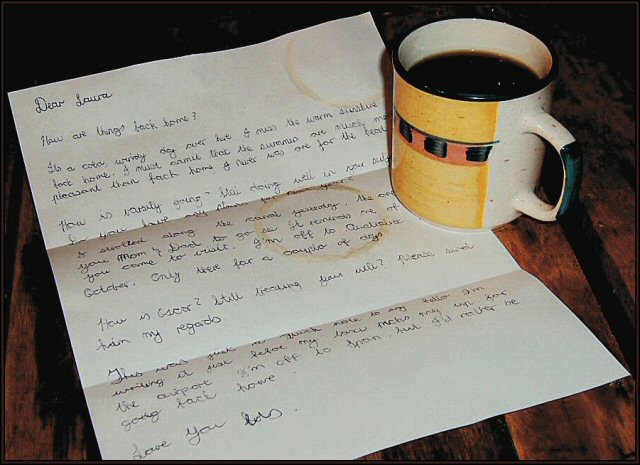 Dear Laura
How are things back home?
Its a cold, windy day over here. I miss the warm sunshine
back home. I must admit that the summers are much more
pleasant than back home I never was one for the heat
How is varsity going? Still doing well in your
Do you have any plans for next year?
I strolled along the canal yesterday, the one
you Mom & Dad to go see. It reminds me of
you come to visit. I'm off to Australia
October. Only there for a couple of days
How is Oscar? Still treating you well? Please send
him my regards
This was just a quick note to say hello. I'm
writing it just before my taxi picks me up for
the airport. I'm off to Spain, but I'd rather be
going back home.
Love you lots.